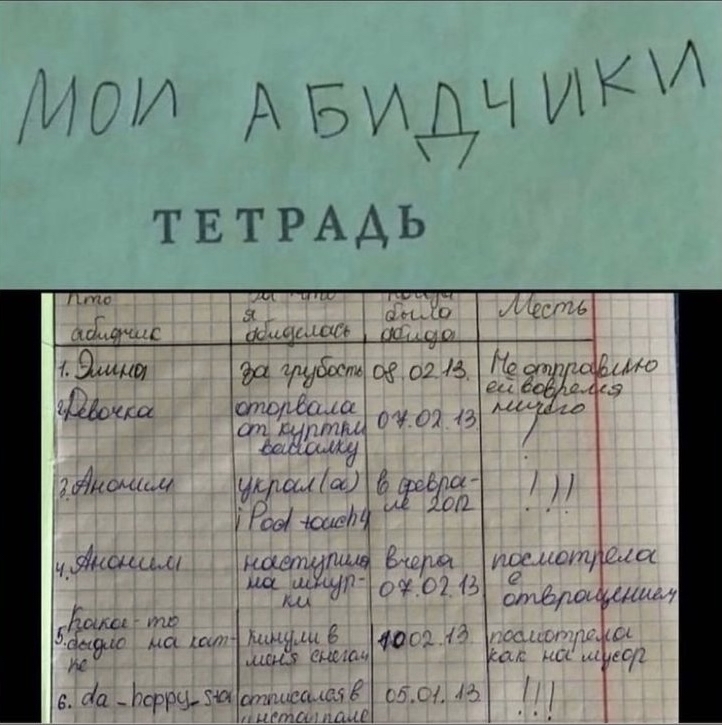 МОИ АБИДЧИКИ
ТЕТРАДЬ
Кто За что Когда
я было Месть
абидчик абиделась абида
1. Элина за грубость 08.02.13. Не отправлю
ей вовремя
2. Девочка оторвала 07.02.13. ничего
от куртки !
3. Аноним украл(а) в февра- !!!
ле 2012
iPod touch 4
4. Аноним наступила вчера посмотрела
на шнур- 07.02.13 с
ки отвращением
Какое-то
5. быдло на кат- кинули в 10 02.13. посмотрела
ке меня снегом как на мусор
6. da_happy_star отписался в 05.01.13. !!!
инстаграме